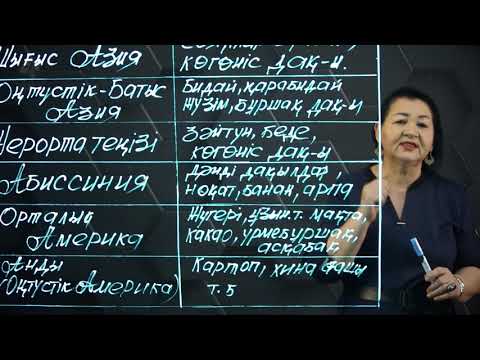 Шығыс Азия
көгөніс дақ-и.
Оңтүстік-Батыс
Азия
Бидай, қарабидай
жүзім, бұршақ дақ-и
Жерорта теңізі
Зәйтүн, беде,
көгөніс дақ-и
Абиссиния
Дәнді дақылдар,
ноқат, банан, арпа
Орталық
Америка
Жүгері, ұзын.т. мақта,
какао, үрмебұршақ,
асқабақ
Анды
(Оңтүстік Америка)
Картоп, хина ағашы
т.б